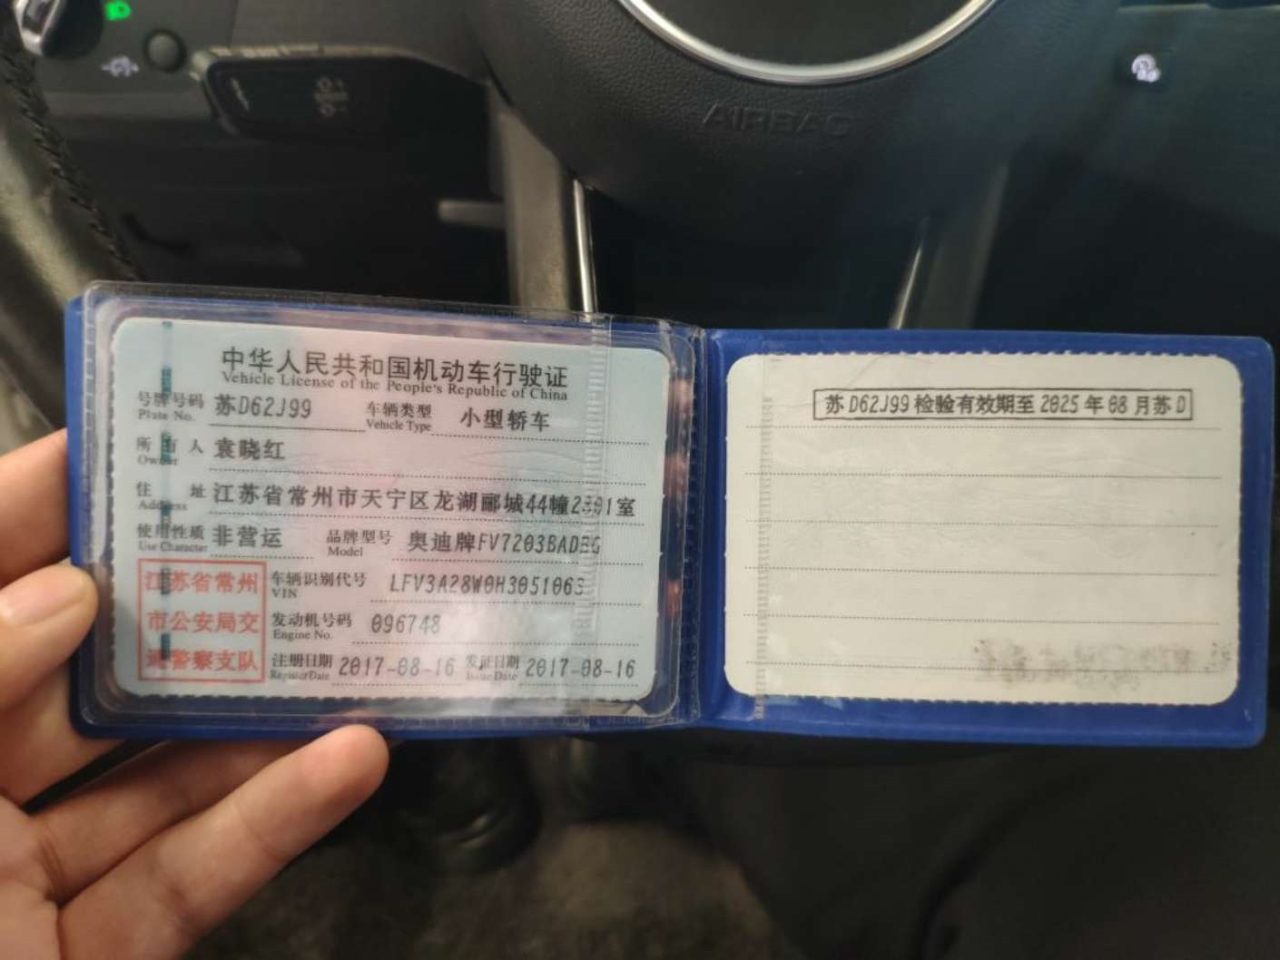 AIRBAG
中华人民共和国机动车行驶证
Vehicle License of the People's Republic of China
号牌号码 苏D62J99 车辆类型 小型轿车
Plate No. Vehicle Type
所有人 袁晓红
Owner
住址 江苏省常州市天宁区龙湖郦城44幢2301室
Address
使用性质 非营运 品牌型号 奥迪牌FV7203BADBG
Use Character Model
江苏省常州
市公安局交
通警察支队
车辆识别代号 LFV3A28W0H3051063
VIN
发动机号码 096748
Engine No.
注册日期 2017-08-16 发证日期 2017-08-16
Register Date Issue Date
苏D62J99检验有效期至2025年08月苏D